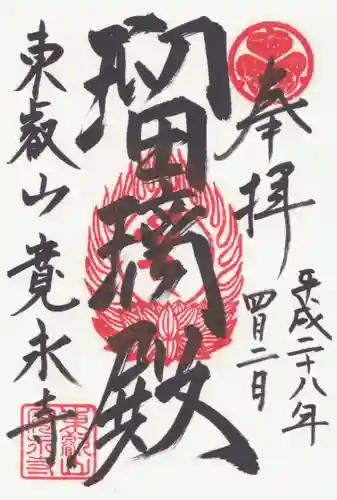 奉拝
平成二十八年
四月二日
瑠璃殿
東叡山寛永寺